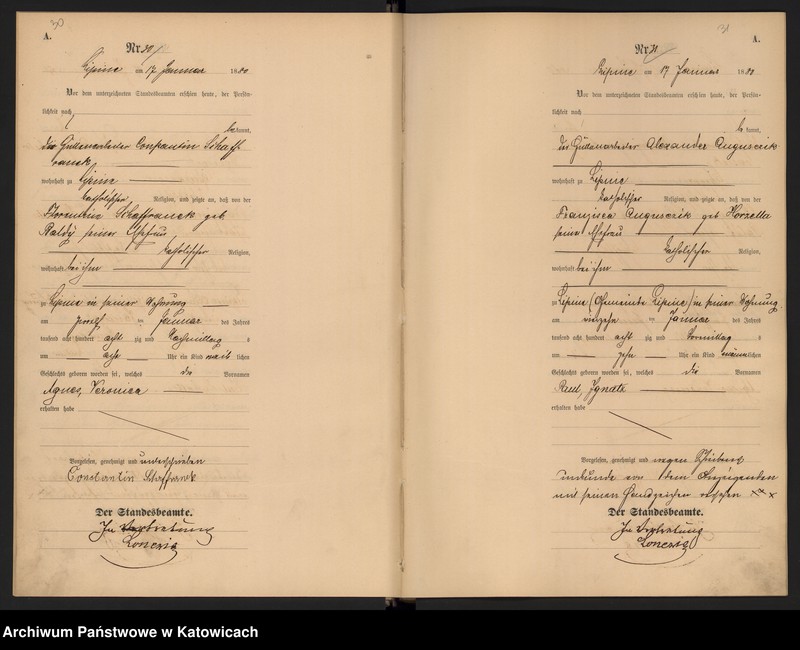 30
A.
Nr. 30
Lipine am 17 Januar 1880
Vor dem unterzeichneten Standesbeamten erschien heute, der Persön-
lichkeit nach
bekannt,
der Hüttenarbeiter Constantin Schaff
ranek
wohnhaft zu Lipine
katholischer Religion, und zeigte an, daß von der
Florentine Schaffranek geb
Baldy seiner Ehefrau
katholischer Religion,
wohnhaft bei ihm
zu Lipine in seiner Wohnung
am zwölf ten Januar des Jahres
tausend acht hundert acht zig und Nachmittag s
um acht Uhr ein Kind weib lichen
Geschlechts geboren worden sei, welches die Vornamen
Agnes, Veronica
erhalten habe
Vorgelesen, genehmigt und unterschrieben
Constantin Schaffranek
Der Standesbeamte.
In Vertretung
31
A.
Nr. 31
Lipine am 17 Januar 1880
Vor dem unterzeichneten Standesbeamten erschien heute, der Persön-
lichkeit nach
bekannt,
der Hüttenarbeiter Alexander Auguscik
wohnhaft zu Lipine
katholischer Religion, und zeigte an, daß von der
Franziska Auguscik geb Horzella
seine Ehefrau
katholischer Religion,
wohnhaft bei ihm
zu Lipine (Gemeinde Lipine) in seiner Wohnung
am vierzehn ten Januar des Jahres
tausend acht hundert acht zig und Vormittag s
um zehn Uhr ein Kind männlichen
Geschlechts geboren worden sei, welches die Vornamen
Paul, Ignatz
erhalten habe
Vorgelesen, genehmigt und wegen Schreibens
unkunde von dem Anzeigenden
mit seinem Handzeichen versehen xxx
Der Standesbeamte.
In Vertretung
Archiwum Państwowe w Katowicach